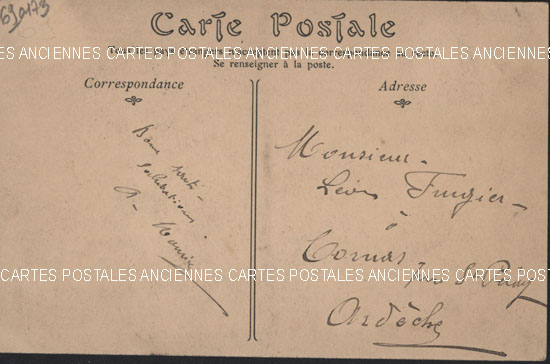 69473
Carte Postale
CARTES POSTALES ANCIENNES CARTES POSTALES ANCIENNES CARTES POSTALES ANCIENNES
Se renseigner à la poste.
Correspondance
Adresse
Bonne santé
Salutations
A.
Monsieur
Léon Fugier
à
Cornas par St Péray
CARTES POSTALES ANCIENNES CARTES POSTALES ANCIENNES CARTES POSTALES ANCIENNES
Ardèche